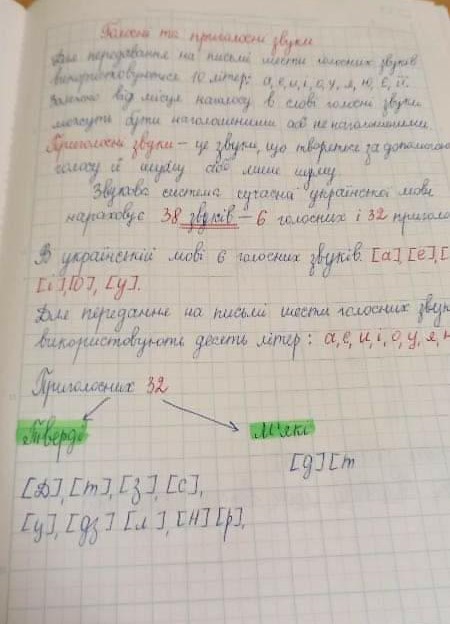 Голосні та приголосні звуки
Для передавання на письмі шести голосних звуків
використовуються 10 літер: а, е, и, і, о, у, я, ю, є, ї.
Залежно від місця наголосу в слові голосні звуки
можуть бути наголошеними або ненаголошеними.
Приголосні звуки – це звуки, що творяться за допомогою
голосу й шуму або лише шуму.
Звукова система сучасна української мови
нараховує 38 звуків – 6 голосних і 32 приголо
В українській мові 6 голосних звуків. [а], [е], [
[і], [о], [у].
Для передання на письмі шести голосних звук
використовують десять літер: а, е, и, і, о, у, я,
Приголосних 32
Тверді М'які
[д] [т
[Д], [т], [з], [с],
[ц], [дз] [л], [н] [р],